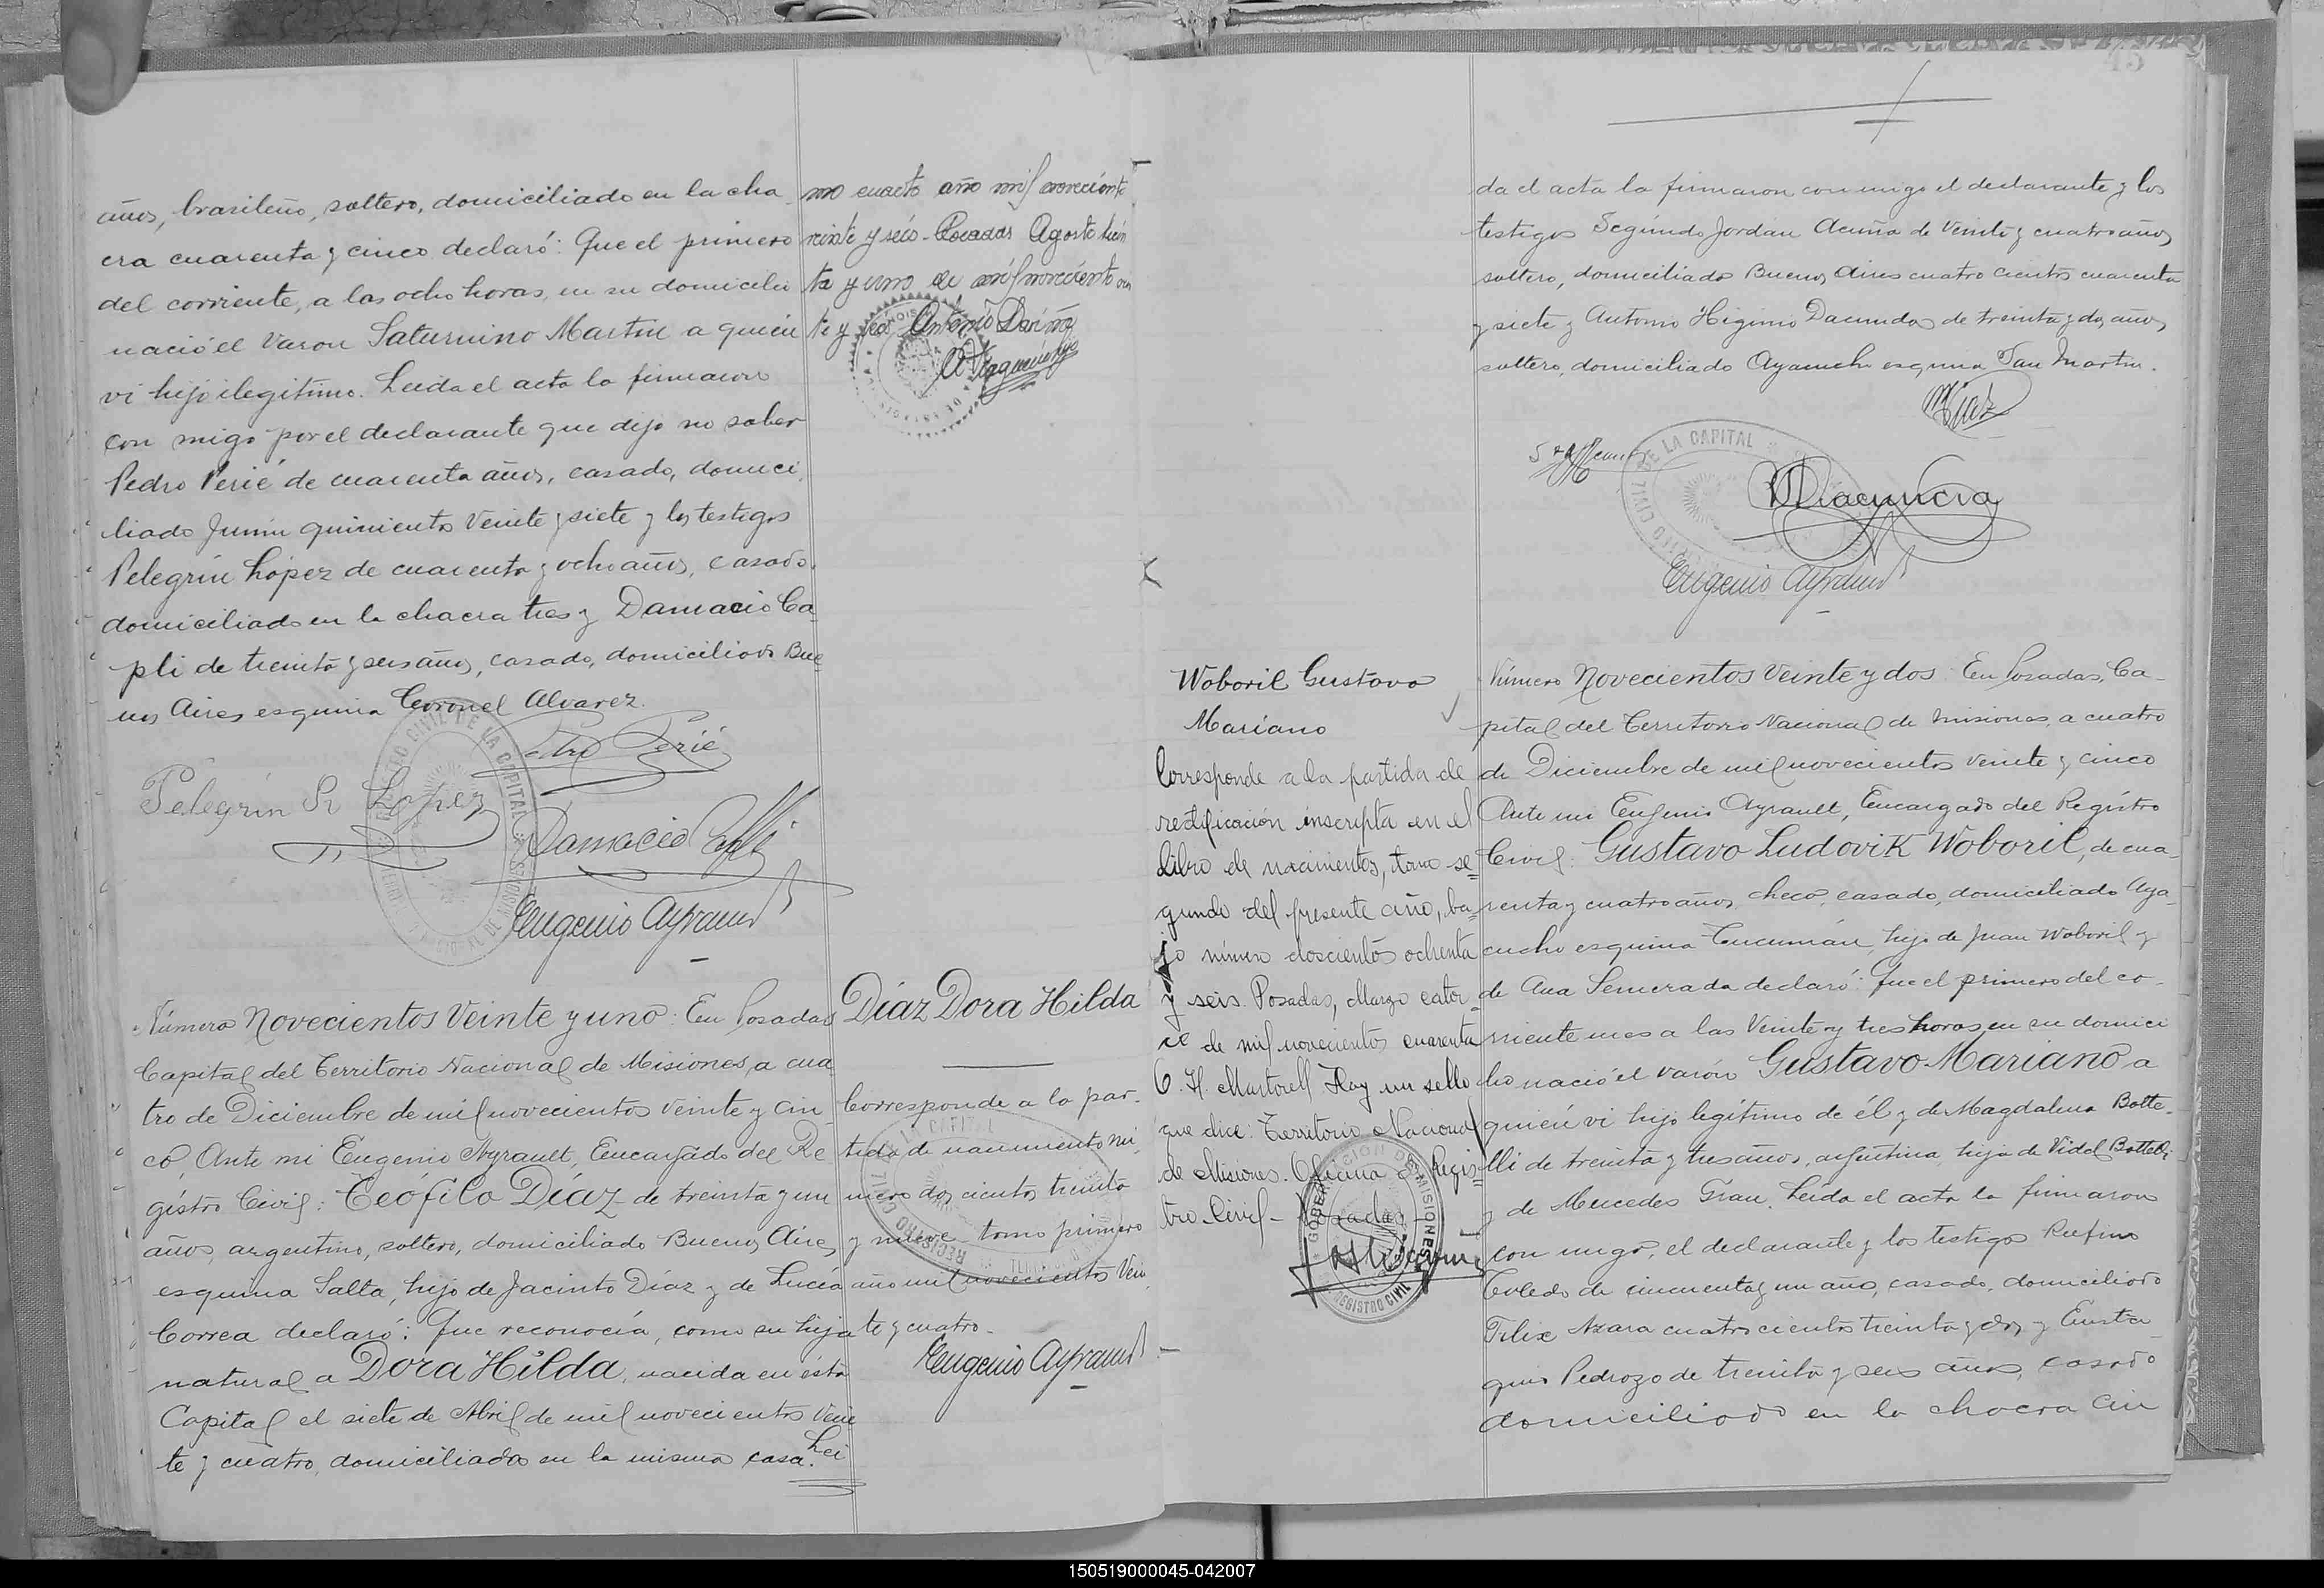 años, brasileño, soltero, domiciliado en la cha
cra cuarenta y cinco declaró: Que el primero
del corriente, a las ocho horas, en su domicilio
nació el varon Saturnino Martin a quien
vi hijo ilegitimo. Leida el acta la firmaron
con migo por el declarante que dijo no saber
Pedro Perié de cuarenta años, casado, domici
liado Junin quinientos veinte y siete y los testigos
Pelegrin López de cuarenta y ocho años, casado,
domiciliado en la chacra tres y Damacio Ca
pli de treinta y seis años, casado, domiciliado Bue
nos Aires esquina Coronel Alvarez.
Pedro Perié
Pelegrin R Lopez
Damacio
Eugenio Ayrault
mo cuarto año mil novecientos
veinte y seis - Posadas Agosto trein
ta y uno de mil novecientos vein
te y seis Antonio
Díaz Dora Hilda
Número Novecientos Veinte y uno: En Posadas
Capital del Territorio Nacional de Misiones, a cua
tro de Diciembre de mil novecientos veinte y cin
co, Ante mi Eugenio Ayrault, Encargado del Re
gistro Civil: Teófilo Díaz de treinta y un
años, argentino, soltero, domiciliado Buenos Aires
esquina Salta, hijo de Jacinto Díaz y de Lucía
Correa declaró: Que reconocía, como su hija
natural a Dora Hilda, nacida en ésta
Capital el siete de Abril de mil novecientos vein
te y cuatro, domiciliada en la misma casa. Lei
Corresponde a la par-
tida de nacimiento nú
mero dos cientos treinta
y nueve tomo primero
año mil novecientos vein
te y cuatro.
Eugenio Ayrault
45
da el acta la firmaron con migo el declarante y los
testigos Segundo Jordán Acuña de veinte y cuatro años,
soltero, domiciliado Buenos Aires cuatro cientos cuarenta
y siete y Antonio Higinio Dacunda de treinta y dos años,
soltero, domiciliado Ayacucho esquina San Martin.
Díaz
Eugenio Ayrault
Woboril Gustavo
Mariano
Corresponde a la partida de
rectificación inscripta en el
Libro de nacimientos, tomo se=
gundo del presente año, ba=
jo número doscientos ochenta
y seis. Posadas, Marzo cator
ce de mil novecientos cuarenta
O. H. Martorell Hay un sello
que dice: Territorio Nacional
de Misiones. Oficina de Regis
tro Civil - Posadas -
Número Novecientos Veinte y dos: En Posadas, Ca-
pital del Territorio Nacional de Misiones, a cuatro
de Diciembre de mil novecientos veinte y cinco
Ante mi Eugenio Ayrault, Encargado del Registro
Civil: Gustavo Ludovik Woboril, de cua-
renta y cuatro años, checo, casado, domiciliado Aya-
cucho esquina Tucumán, hijo de Juan Woboril y
de Ana Semerada declaró: Que el primero del co-
rriente mes a las veinte y tres horas, en su domici
lio nació el varón Gustavo Mariano a
quién vi hijo legítimo de él y de Magdalena Botte-
lli de treinta y tres años, argentina, hija de Vidal Bottelli
y de Mercedes Grau. Leída el acta la firmaron
con migo, el declarante y los testigos Rufino
Toledo de cincuenta y un año, casado, domiciliado
Felix Azara cuatro cientos treinta y dos y Eusta-
quio Pedrozo de treinta y seis años, casado
domiciliado en la chacra cin
150519000045-042007